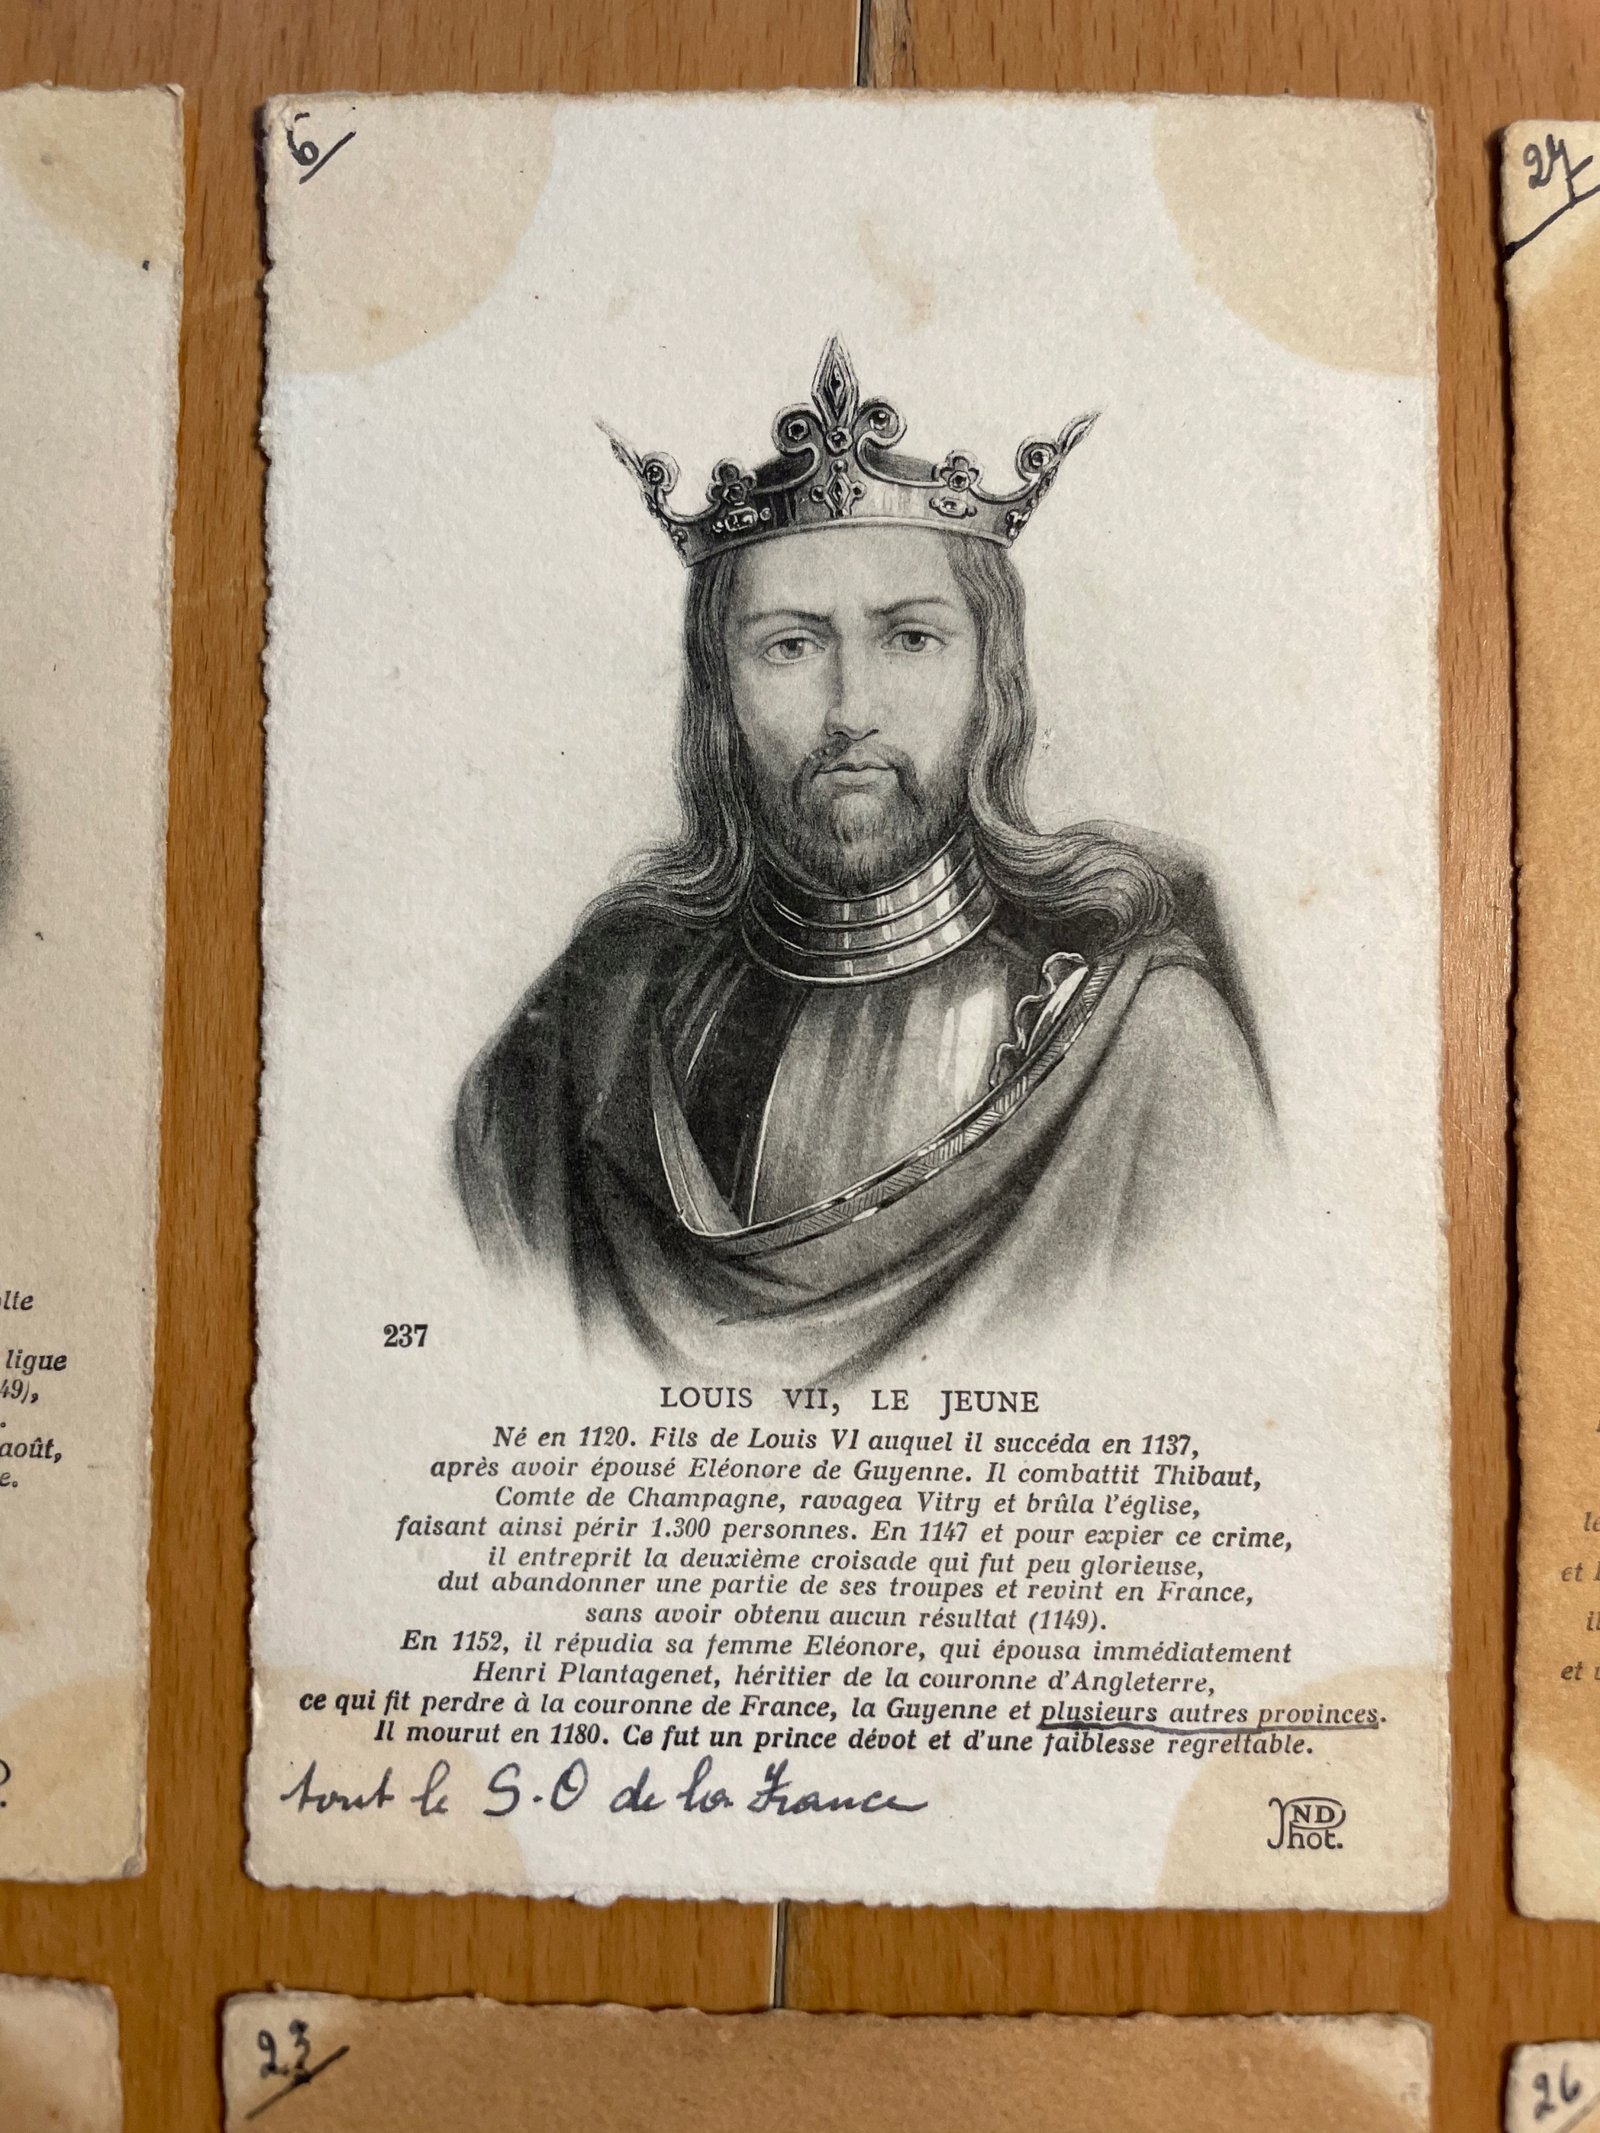 6
27
237
LOUIS VII, LE JEUNE
Né en 1120. Fils de Louis VI auquel il succéda en 1137,
après avoir épousé Eléonore de Guyenne. Il combattit Thibaut,
Comte de Champagne, ravagea Vitry et brûla l'église,
faisant ainsi périr 1.300 personnes. En 1147 et pour expier ce crime,
il entreprit la deuxième croisade qui fut peu glorieuse,
dut abandonner une partie de ses troupes et revint en France,
sans avoir obtenu aucun résultat (1149).
En 1152, il répudia sa femme Eléonore, qui épousa immédiatement
Henri Plantagenet, héritier de la couronne d'Angleterre,
ce qui fit perdre à la couronne de France, la Guyenne et plusieurs autres provinces.
Il mourut en 1180. Ce fut un prince dévot et d'une faiblesse regrettable.
tout le S.O de la France
ND
Phot.
ligue
49),
août,
e.
et
il
et
23
26